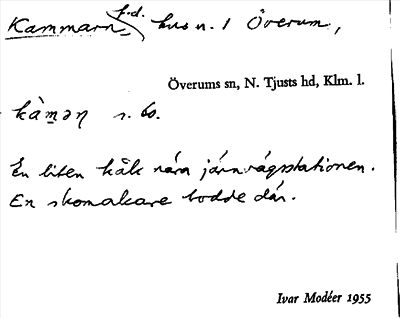 Kammarn, f.d. hus n. I Överum,
Överums sn, N. Tjusts hd, Klm. l.
kàmən s. bo.
En liten kåk nära järnvägsstationen.
En skomakare bodde där.
Ivar Modéer 1955